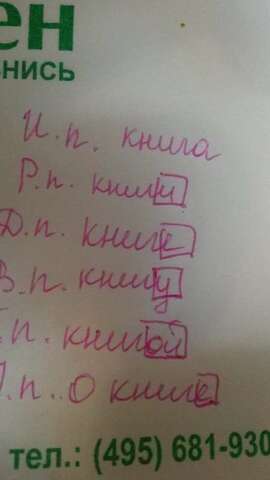 ен
внись
И.п. книга
Р.п. книги
Д.п. книге
В.п. книгу
.п. книгой
.п. О книге
тел.: (495) 681-930